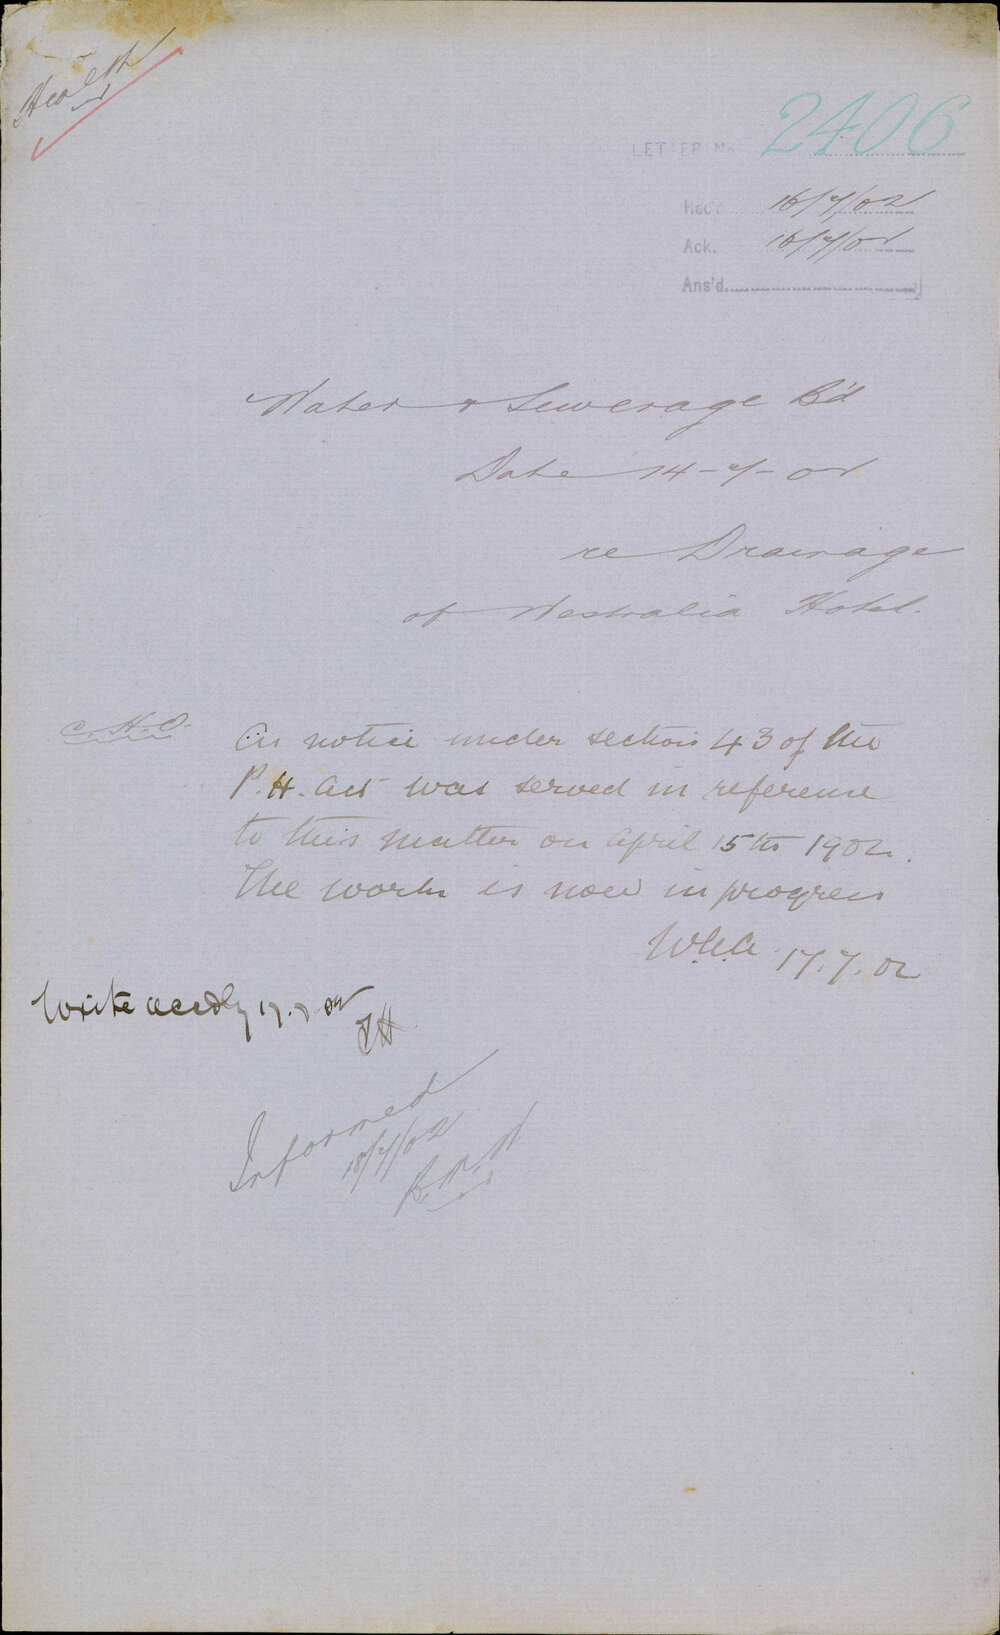 Health
LETTER No. 2406
Rec'd 16/7/02
Ack. 16/7/02
Ans'd.
Water & Sewerage B'd
Date 14-7-02
re Drainage
of Westralia Hotel.
C.H.O.
A notice under section 43 of the
P.H. Act was served in reference
to this matter on April 15th 1902.
The work is now in progress
17.7.02
Write accdly 17.7.02
Informed
18/7/02